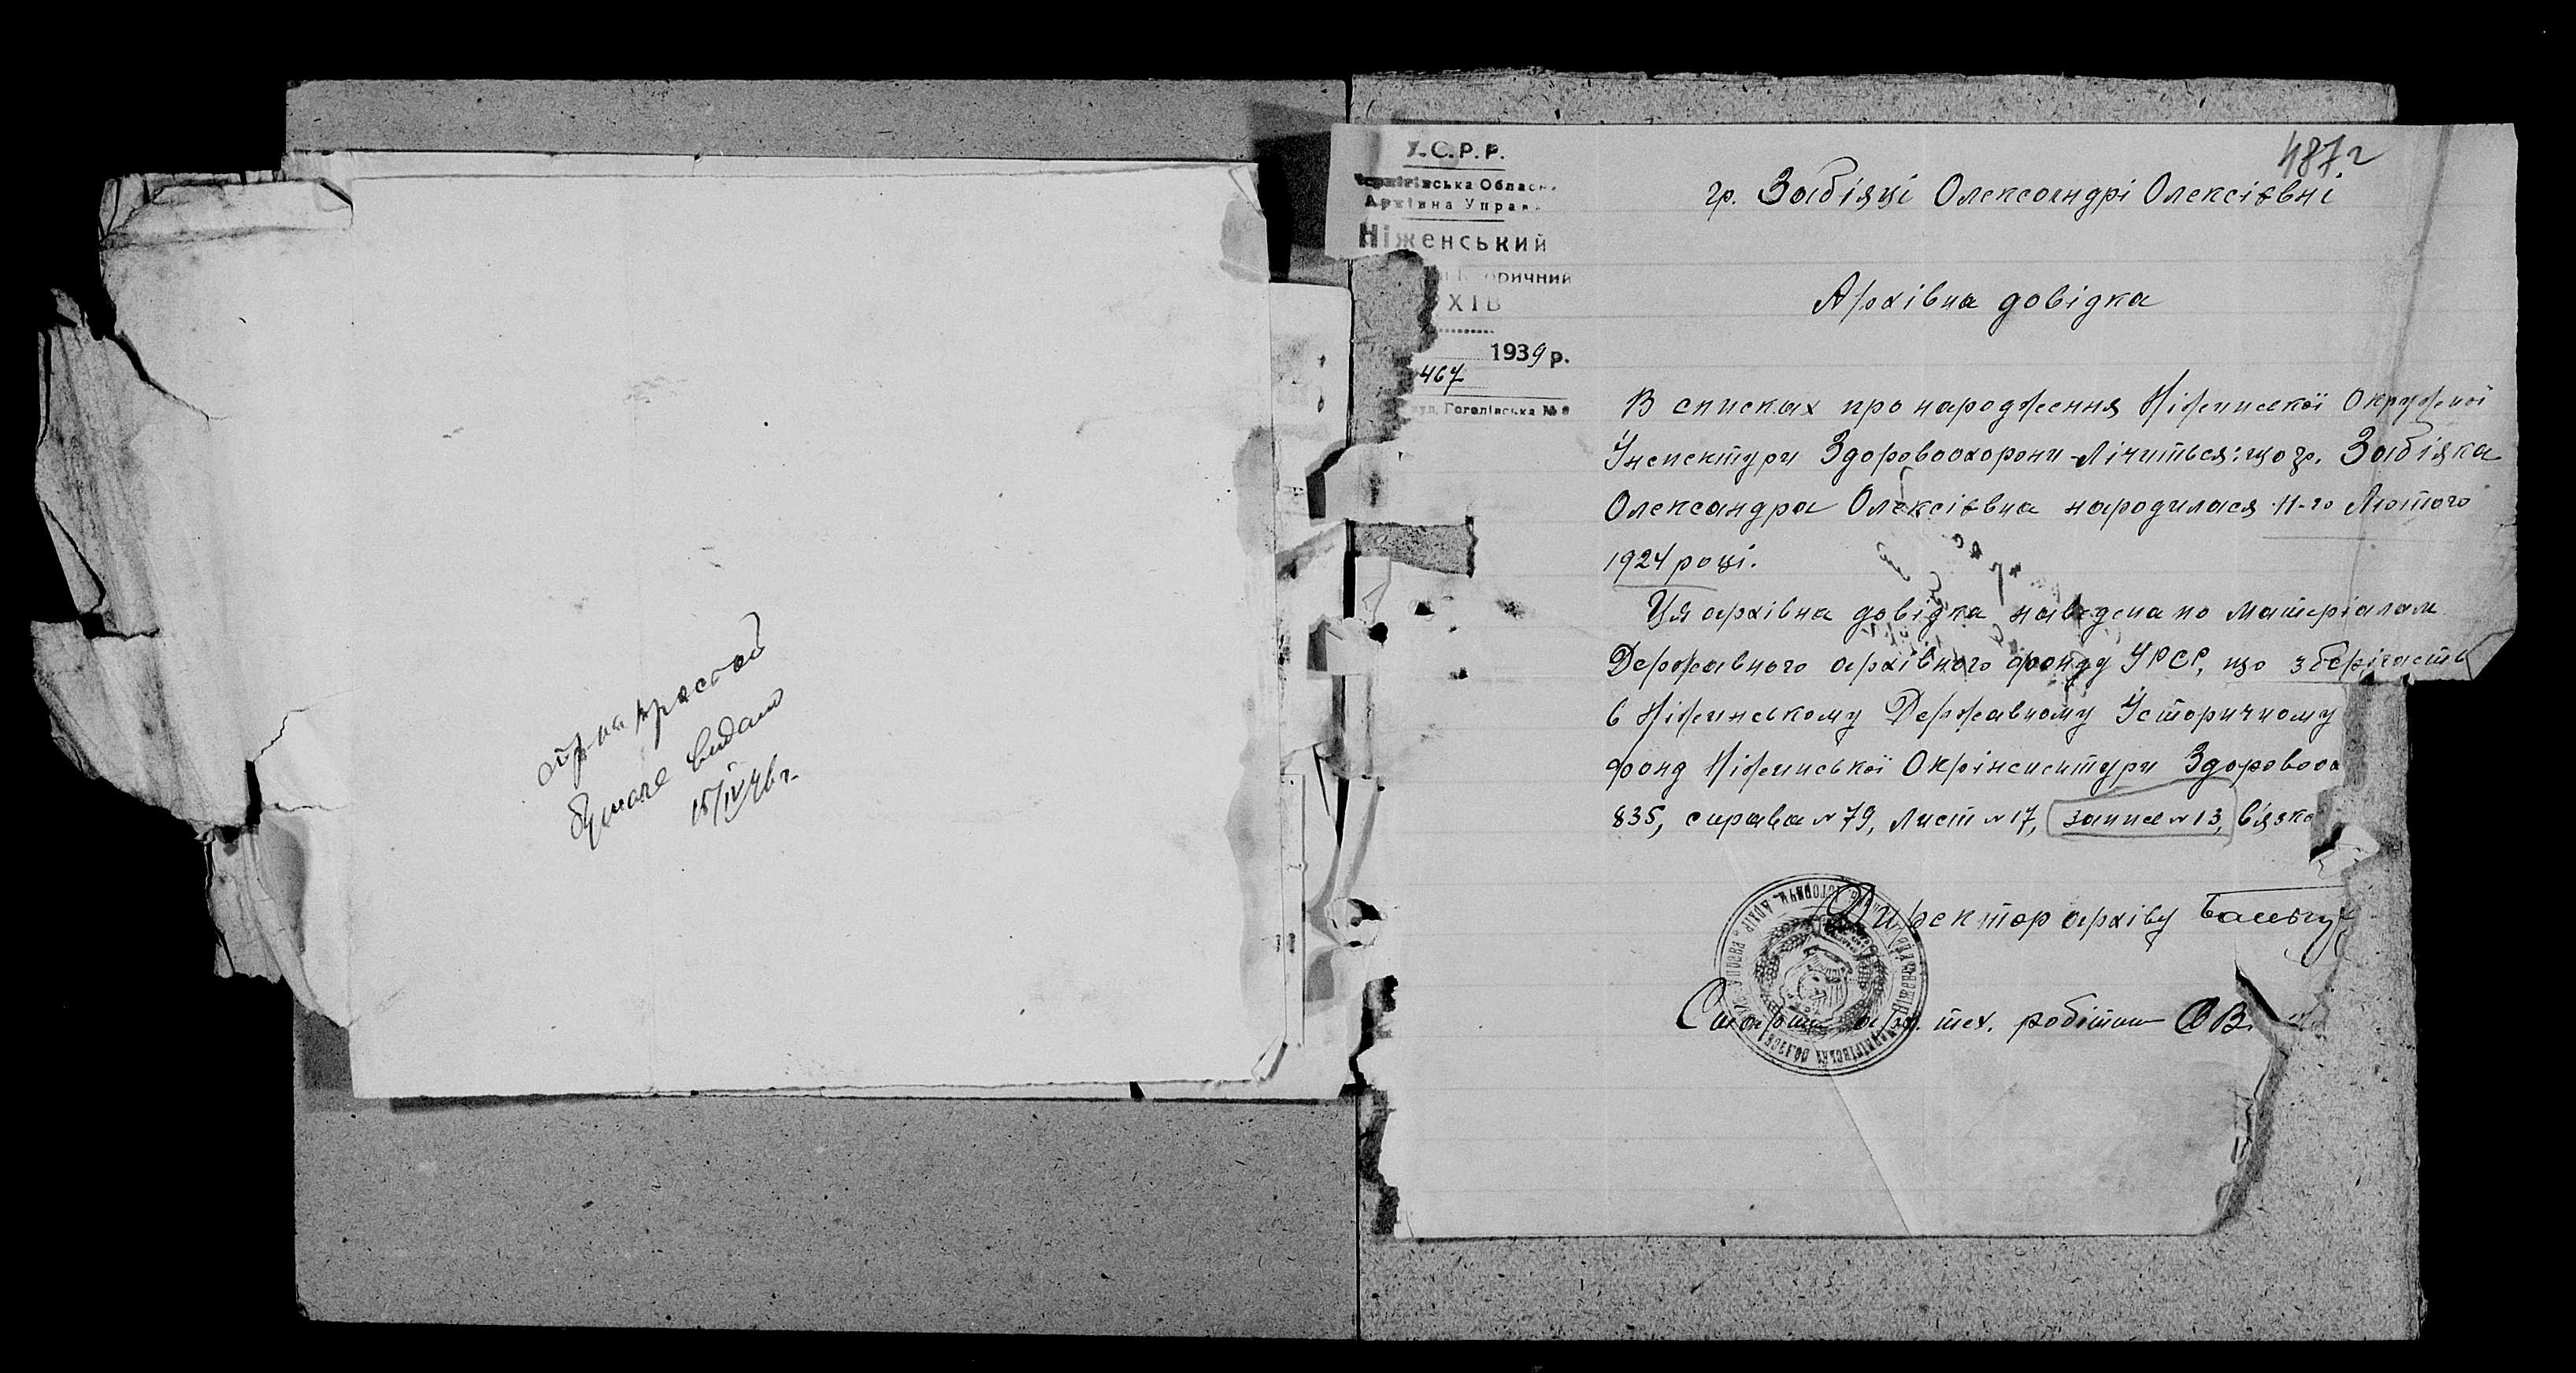 бумаге видано
15/IV 46 г.
У.С.Р.Р.
Чернігівська Облас
Архівна Управ
Ніженський
оричний
ХІВ
1939 р.
467
вул. Гоголівська №
487
гр. Забіяці Олександрі Олексієвні
Архівна довідка
В списках про народження Ніженської Окружної
Інспектури Здоровоохорони лічиться: що гр. Забіяка
Олександра Олексієвна народилася 11-го Лютого
1924 році.
Ця архівна довідка наведена по матеріалам
Державного архівного фонду УРСР, що зберігаєть
в Ніжинському Державному Історичному
фонд Ніжинської Окрінспектури Здоровоох
835, справа № 79, лист № 17, запис № 13, в'язка
Директор архіву
арх. тех. робітник